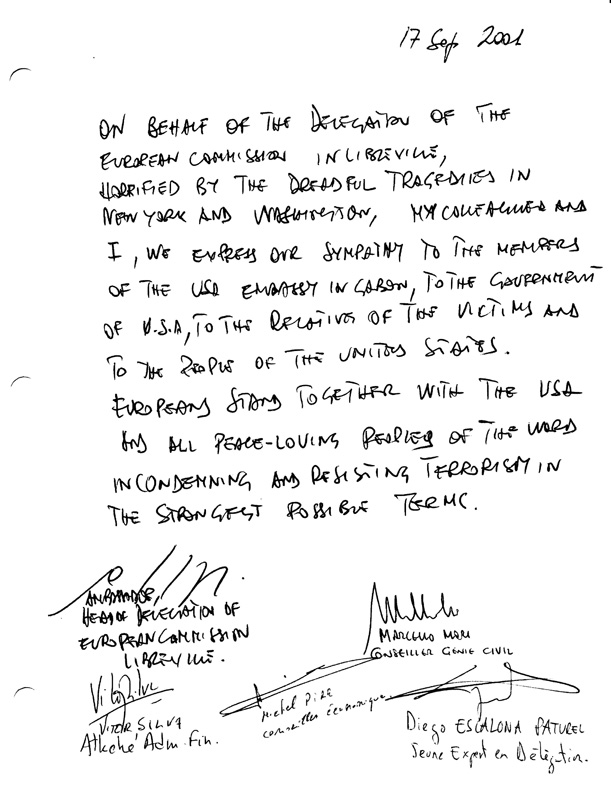 17 Sep 2001
ON BEHALF OF THE DELEGATION OF THE
EUROPEAN COMMISSION IN LIBREVILLE,
HORRIFIED BY THE DREADFUL TRAGEDIES IN
NEW YORK AND WASHINGTON, MY COLLEAGUES AND
I, WE EXPRESS OUR SYMPATHY TO THE MEMBERS
OF THE USA EMBASSY IN GABON, TO THE GOVERNMENT
OF U.S.A, TO THE RELATIVES OF THE VICTIMS AND
TO THE PEOPLE OF THE UNITED STATES.
EUROPEANS STAND TOGETHER WITH THE USA
AND ALL PEACE-LOVING PEOPLES OF THE WORD
IN CONDEMNING AND RESISTING TERRORISM IN
THE STRONGEST POSSIBLE TERMS.
AMBASSADOR,
HEAD OF DELEGATION OF
EUROPEAN COMMISSION
LIBREVILLE.
MARCELLO MORI
CONSEILLER GÉNIE CIVIL
VITOR SILVA
Attaché Adm. Fin.
Michel
conseiller économique
Diego ESCALONA PATUREL
Jeune Expert en Délégation.